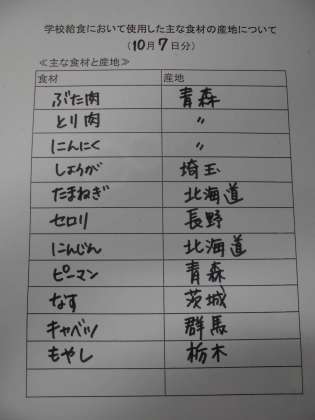 学校給食において使用した主な食材の産地について
(10月7日分)
≪主な食材と産地≫
食材 産地
ぶた肉 青森
とり肉 〃
にんにく 〃
しょうが 埼玉
たまねぎ 北海道
セロリ 長野
にんじん 北海道
ピーマン 青森
なす 茨城
キャベツ 群馬
もやし 栃木